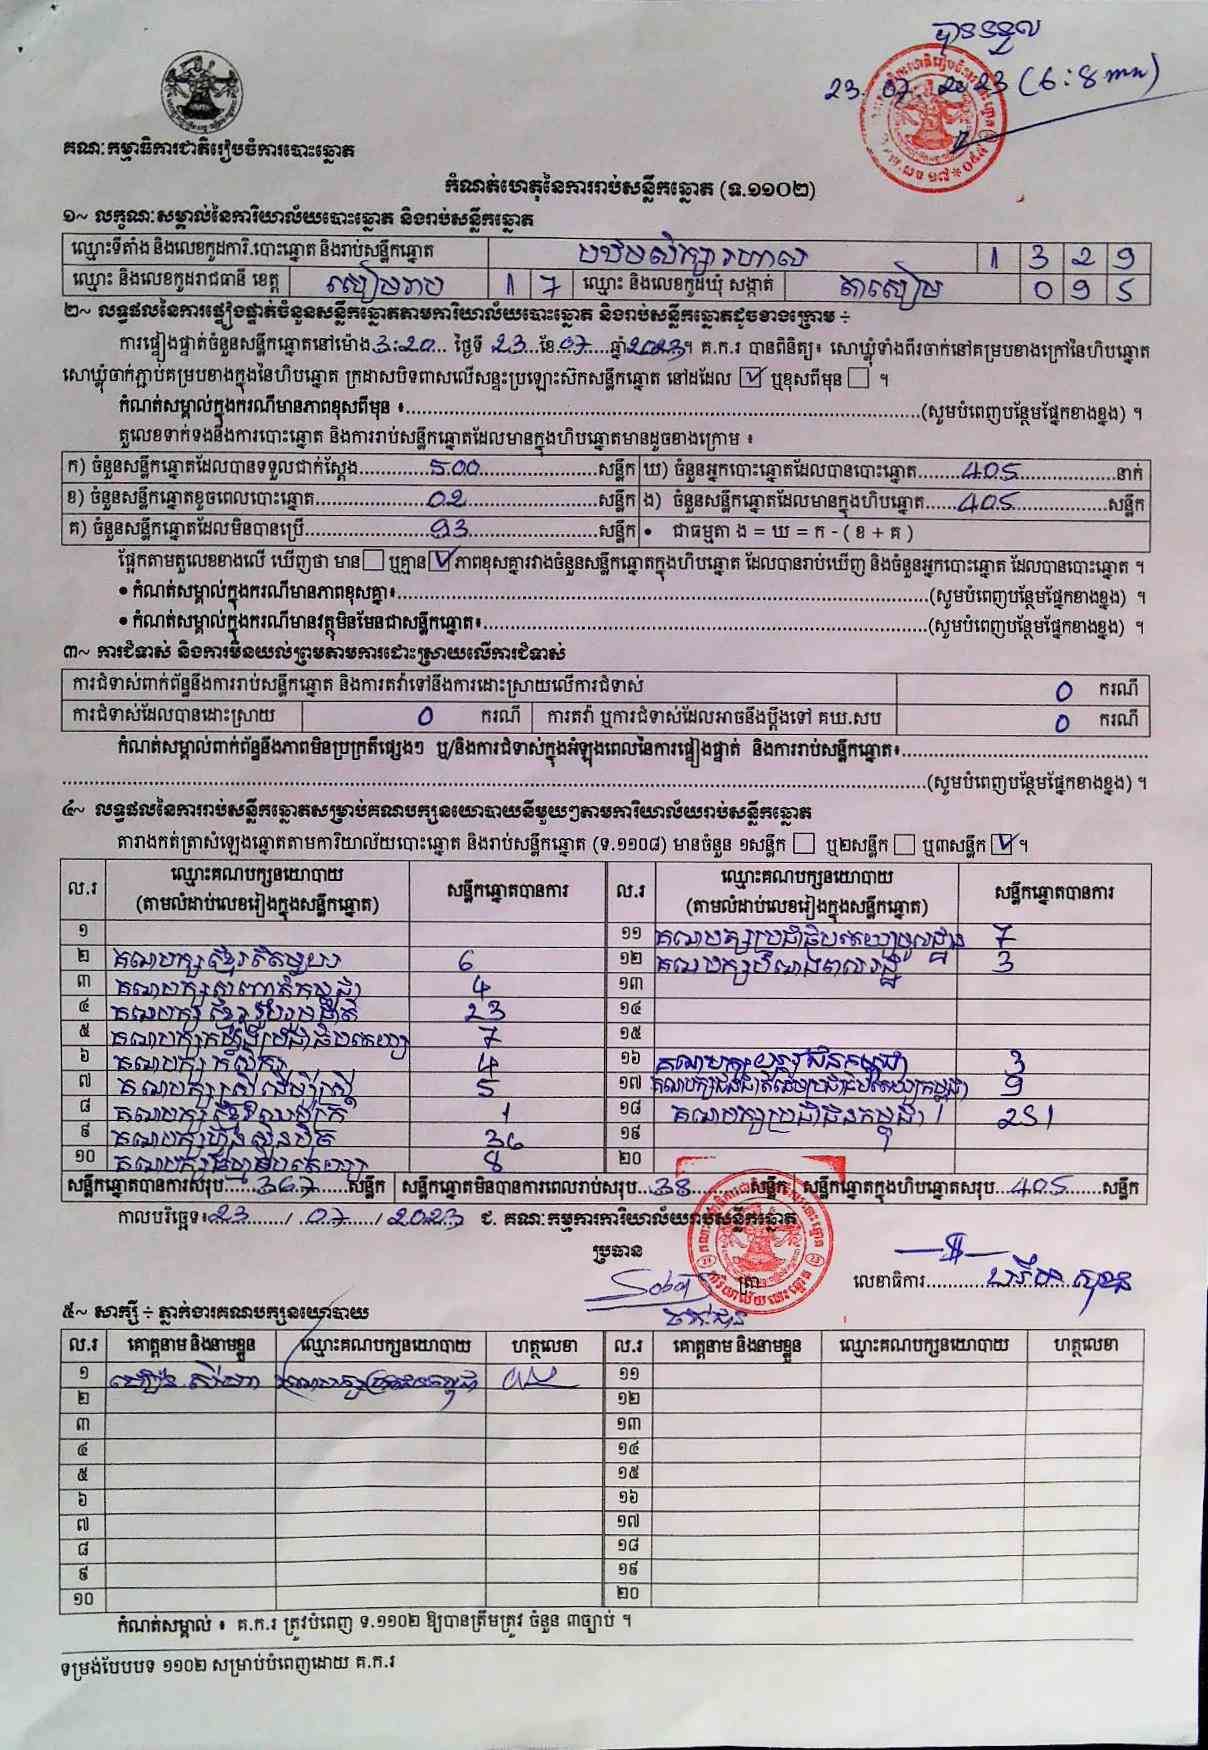 បានទទួល
23. 07. 2023 (6:8 mn)
គណៈកម្មាធិការជាតិរៀបចំការបោះឆ្នោត
កំណត់ហេតុនៃការរាប់សន្លឹកឆ្នោត (ទ.១១០២)
១~ លក្ខណៈសម្គាល់នៃការិយាល័យបោះឆ្នោត និងរាប់សន្លឹកឆ្នោត
ឈ្មោះទីតាំង និងលេខកូដការិ.បោះឆ្នោត និងរាប់សន្លឹកឆ្នោត 1 3 2 9
ឈ្មោះ និងលេខកូដរាជធានី ខេត្ត សៀមរាប 1 7 ឈ្មោះ និងលេខកូដឃុំ សង្កាត់ តាសៀម 0 9 5
២~ លទ្ធផលនៃការផ្ទៀងផ្ទាត់ចំនួនសន្លឹកឆ្នោតតាមការិយាល័យបោះឆ្នោត និងរាប់សន្លឹកឆ្នោតដូចខាងក្រោម ÷
ការផ្ទៀងផ្ទាត់ចំនួនសន្លឹកឆ្នោតនៅម៉ោង 3:20... ថ្ងៃទី 23 ខែ 07 ឆ្នាំ 2023។ គ.ក.រ បានពិនិត្យ៖ សោឃ្លុំទាំងពីរចាក់នៅគម្របខាងក្រៅនៃហិបឆ្នោត
សោឃ្លុំចាក់ភ្ជាប់គម្របខាងក្នុងនៃហិបឆ្នោត ក្រដាសបិទពាសលើសន្ទះប្រឡោះស៊កសន្លឹកឆ្នោត នៅដដែល ☑ ឬខុសពីមុន ☐ ។
កំណត់សម្គាល់ក្នុងករណីមានភាពខុសពីមុន ៖......(សូមបំពេញបន្ថែមផ្នែកខាងខ្នង) ។
តួលេខទាក់ទងនឹងការបោះឆ្នោត និងការរាប់សន្លឹកឆ្នោតដែលមានក្នុងហិបឆ្នោតមានដូចខាងក្រោម ៖
ក) ចំនួនសន្លឹកឆ្នោតដែលបានទទួលជាក់ស្តែង......500......សន្លឹក ឃ) ចំនួនអ្នកបោះឆ្នោតដែលបានបោះឆ្នោត......405......នាក់
ខ) ចំនួនសន្លឹកឆ្នោតខូចពេលបោះឆ្នោត......02......សន្លឹក ង) ចំនួនសន្លឹកឆ្នោតដែលមានក្នុងហិបឆ្នោត......405......សន្លឹក
គ) ចំនួនសន្លឹកឆ្នោតដែលមិនបានប្រើ......93......សន្លឹក • ជាធម្មតា ង = ឃ = ក - ( ខ + គ )
ផ្អែកតាមតួលេខខាងលើ ឃើញថា មាន ☐ ឬគ្មាន ☑ ភាពខុសគ្នារវាងចំនួនសន្លឹកឆ្នោតក្នុងហិបឆ្នោត ដែលបានរាប់ឃើញ និងចំនួនអ្នកបោះឆ្នោត ដែលបានបោះឆ្នោត ។
• កំណត់សម្គាល់ក្នុងករណីមានភាពខុសគ្នា៖......(សូមបំពេញបន្ថែមផ្នែកខាងខ្នង) ។
• កំណត់សម្គាល់ក្នុងករណីមានវត្ថុមិនមែនជាសន្លឹកឆ្នោត៖......(សូមបំពេញបន្ថែមផ្នែកខាងខ្នង) ។
៣~ ការជំទាស់ និងការមិនយល់ព្រមតាមការដោះស្រាយលើការជំទាស់
ការជំទាស់ពាក់ព័ន្ធនឹងការរាប់សន្លឹកឆ្នោត និងការតវ៉ាទៅនឹងការដោះស្រាយលើការជំទាស់ 0 ករណី
ការជំទាស់ដែលបានដោះស្រាយ 0 ករណី ការតវ៉ា ឬការជំទាស់ដែលអាចនឹងប្តឹងទៅ គឃ.សប 0 ករណី
កំណត់សម្គាល់ពាក់ព័ន្ធនឹងភាពមិនប្រក្រតីផ្សេងៗ ឬ/និងការជំទាស់ក្នុងអំឡុងពេលនៃការផ្ទៀងផ្ទាត់ និងការរាប់សន្លឹកឆ្នោត៖......
......(សូមបំពេញបន្ថែមផ្នែកខាងខ្នង) ។
៤~ លទ្ធផលនៃការរាប់សន្លឹកឆ្នោតសម្រាប់គណបក្សនយោបាយនីមួយៗតាមការិយាល័យរាប់សន្លឹកឆ្នោត
តារាងកត់ត្រាសំឡេងឆ្នោតតាមការិយាល័យបោះឆ្នោត និងរាប់សន្លឹកឆ្នោត (ទ.១១០៨) មានចំនួន ១សន្លឹក ☐ ឬ២សន្លឹក ☐ ឬ៣សន្លឹក ☑ ។
ល.រ ឈ្មោះគណបក្សនយោបាយ (តាមលំដាប់លេខរៀងក្នុងសន្លឹកឆ្នោត) សន្លឹកឆ្នោតបានការ ល.រ ឈ្មោះគណបក្សនយោបាយ (តាមលំដាប់លេខរៀងក្នុងសន្លឹកឆ្នោត) សន្លឹកឆ្នោតបានការ
១ ១១ គណបក្សប្រជាធិបតេយ្យមូលដ្ឋាន 7
២ 6 ១២ 3
៣ 4 ១៣
៤ គណបក្សខ្មែររួបរួមជាតិ 23 ១៤
៥ 7 ១៥
៦ គណបក្សកសិករ 4 ១៦ 3
៧ គណបក្សស្ត្រីដើម្បីស្ត្រី 5 ១៧ 9
៨ 1 ១៨ គណបក្សប្រជាជនកម្ពុជា 251
៩ គណបក្សហ៊្វុនស៊ិនប៉ិច 36 ១៩
១០ គណបក្សធម្មាធិបតេយ្យ 8 ២០
សន្លឹកឆ្នោតបានការសរុប......367......សន្លឹក សន្លឹកឆ្នោតមិនបានការពេលរាប់សរុប...38......សន្លឹក សន្លឹកឆ្នោតក្នុងហិបឆ្នោតសរុប...405......សន្លឹក
កាលបរិច្ឆេទ៖23....../ 07....../ 2023 ជ. គណៈកម្មការការិយាល័យរាប់សន្លឹកឆ្នោត
ប្រធាន
ត្រា លេខាធិការ......
៥~ សាក្សី ÷ ភ្នាក់ងារគណបក្សនយោបាយ
ល.រ គោត្តនាម និងនាមខ្លួន ឈ្មោះគណបក្សនយោបាយ ហត្ថលេខា ល.រ គោត្តនាម និងនាមខ្លួន ឈ្មោះគណបក្សនយោបាយ ហត្ថលេខា
១ គណបក្សប្រជាជនកម្ពុជា ១១
២ ១២
៣ ១៣
៤ ១៤
៥ ១៥
៦ ១៦
៧ ១៧
៨ ១៨
៩ ១៩
១០ ២០
កំណត់សម្គាល់ ៖ គ.ក.រ ត្រូវបំពេញ ទ.១១០២ ឱ្យបានត្រឹមត្រូវ ចំនួន ៣ច្បាប់ ។
ទម្រង់បែបបទ ១១០២ សម្រាប់បំពេញដោយ គ.ក.រ